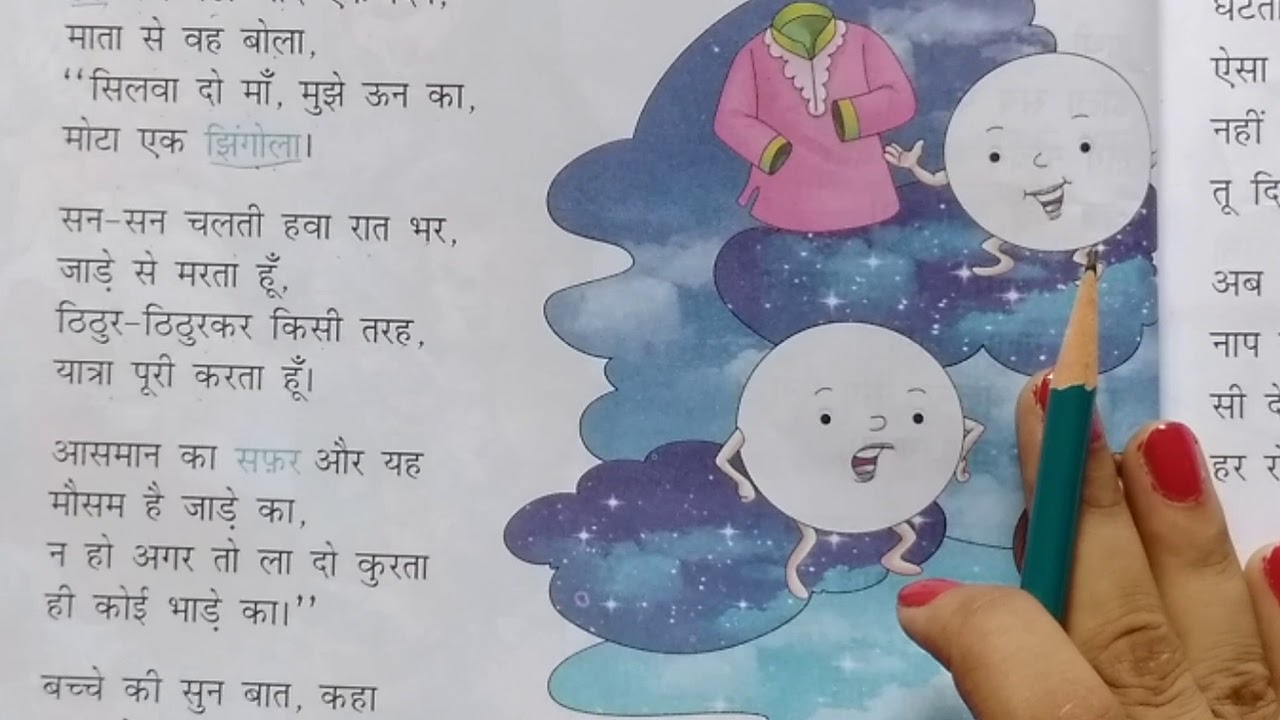 माता से वह बोला,
“सिलवा दो माँ, मुझे ऊन का,
मोटा एक झिंगोला।
सन-सन चलती हवा रात भर,
जाड़े से मरता हूँ,
ठिठुर-ठिठुरकर किसी तरह,
यात्रा पूरी करता हूँ।
आसमान का सफ़र और यह
मौसम है जाड़े का,
न हो अगर तो ला दो कुरता
ही कोई भाड़े का।”
बच्चे की सुन बात, कहा
ऐसा
नहीं
तू
अब
नाप
सी
हर